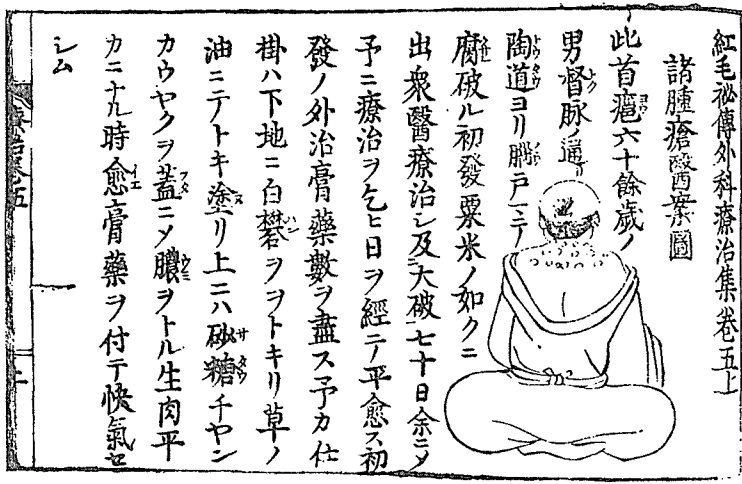 紅毛祕傳外科療治集卷五上
諸腫瘡醫案圖
此首瘡六十餘歳ノ
男督脉ノ通リ
陶道ヨリ腦戸ニ
腐破ル初發粟米ノ如クニ
出衆醫療治シ及大破七十日余ニメ
予ニ療治ヲ乞ヒ日ヲ經ニテ平愈ス初
發ノ外治膏藥數ヲ盡ス予カ仕
掛ハ下地ニ白礬ヲヲトキリ草ノ
油ニテトキ塗リ上ニハ砂糖チヤン
カウヤクヲ蓋ニメ膿ヲトル生肉平
カニナル時愈膏藥ヲ付テ快氣セ
シム